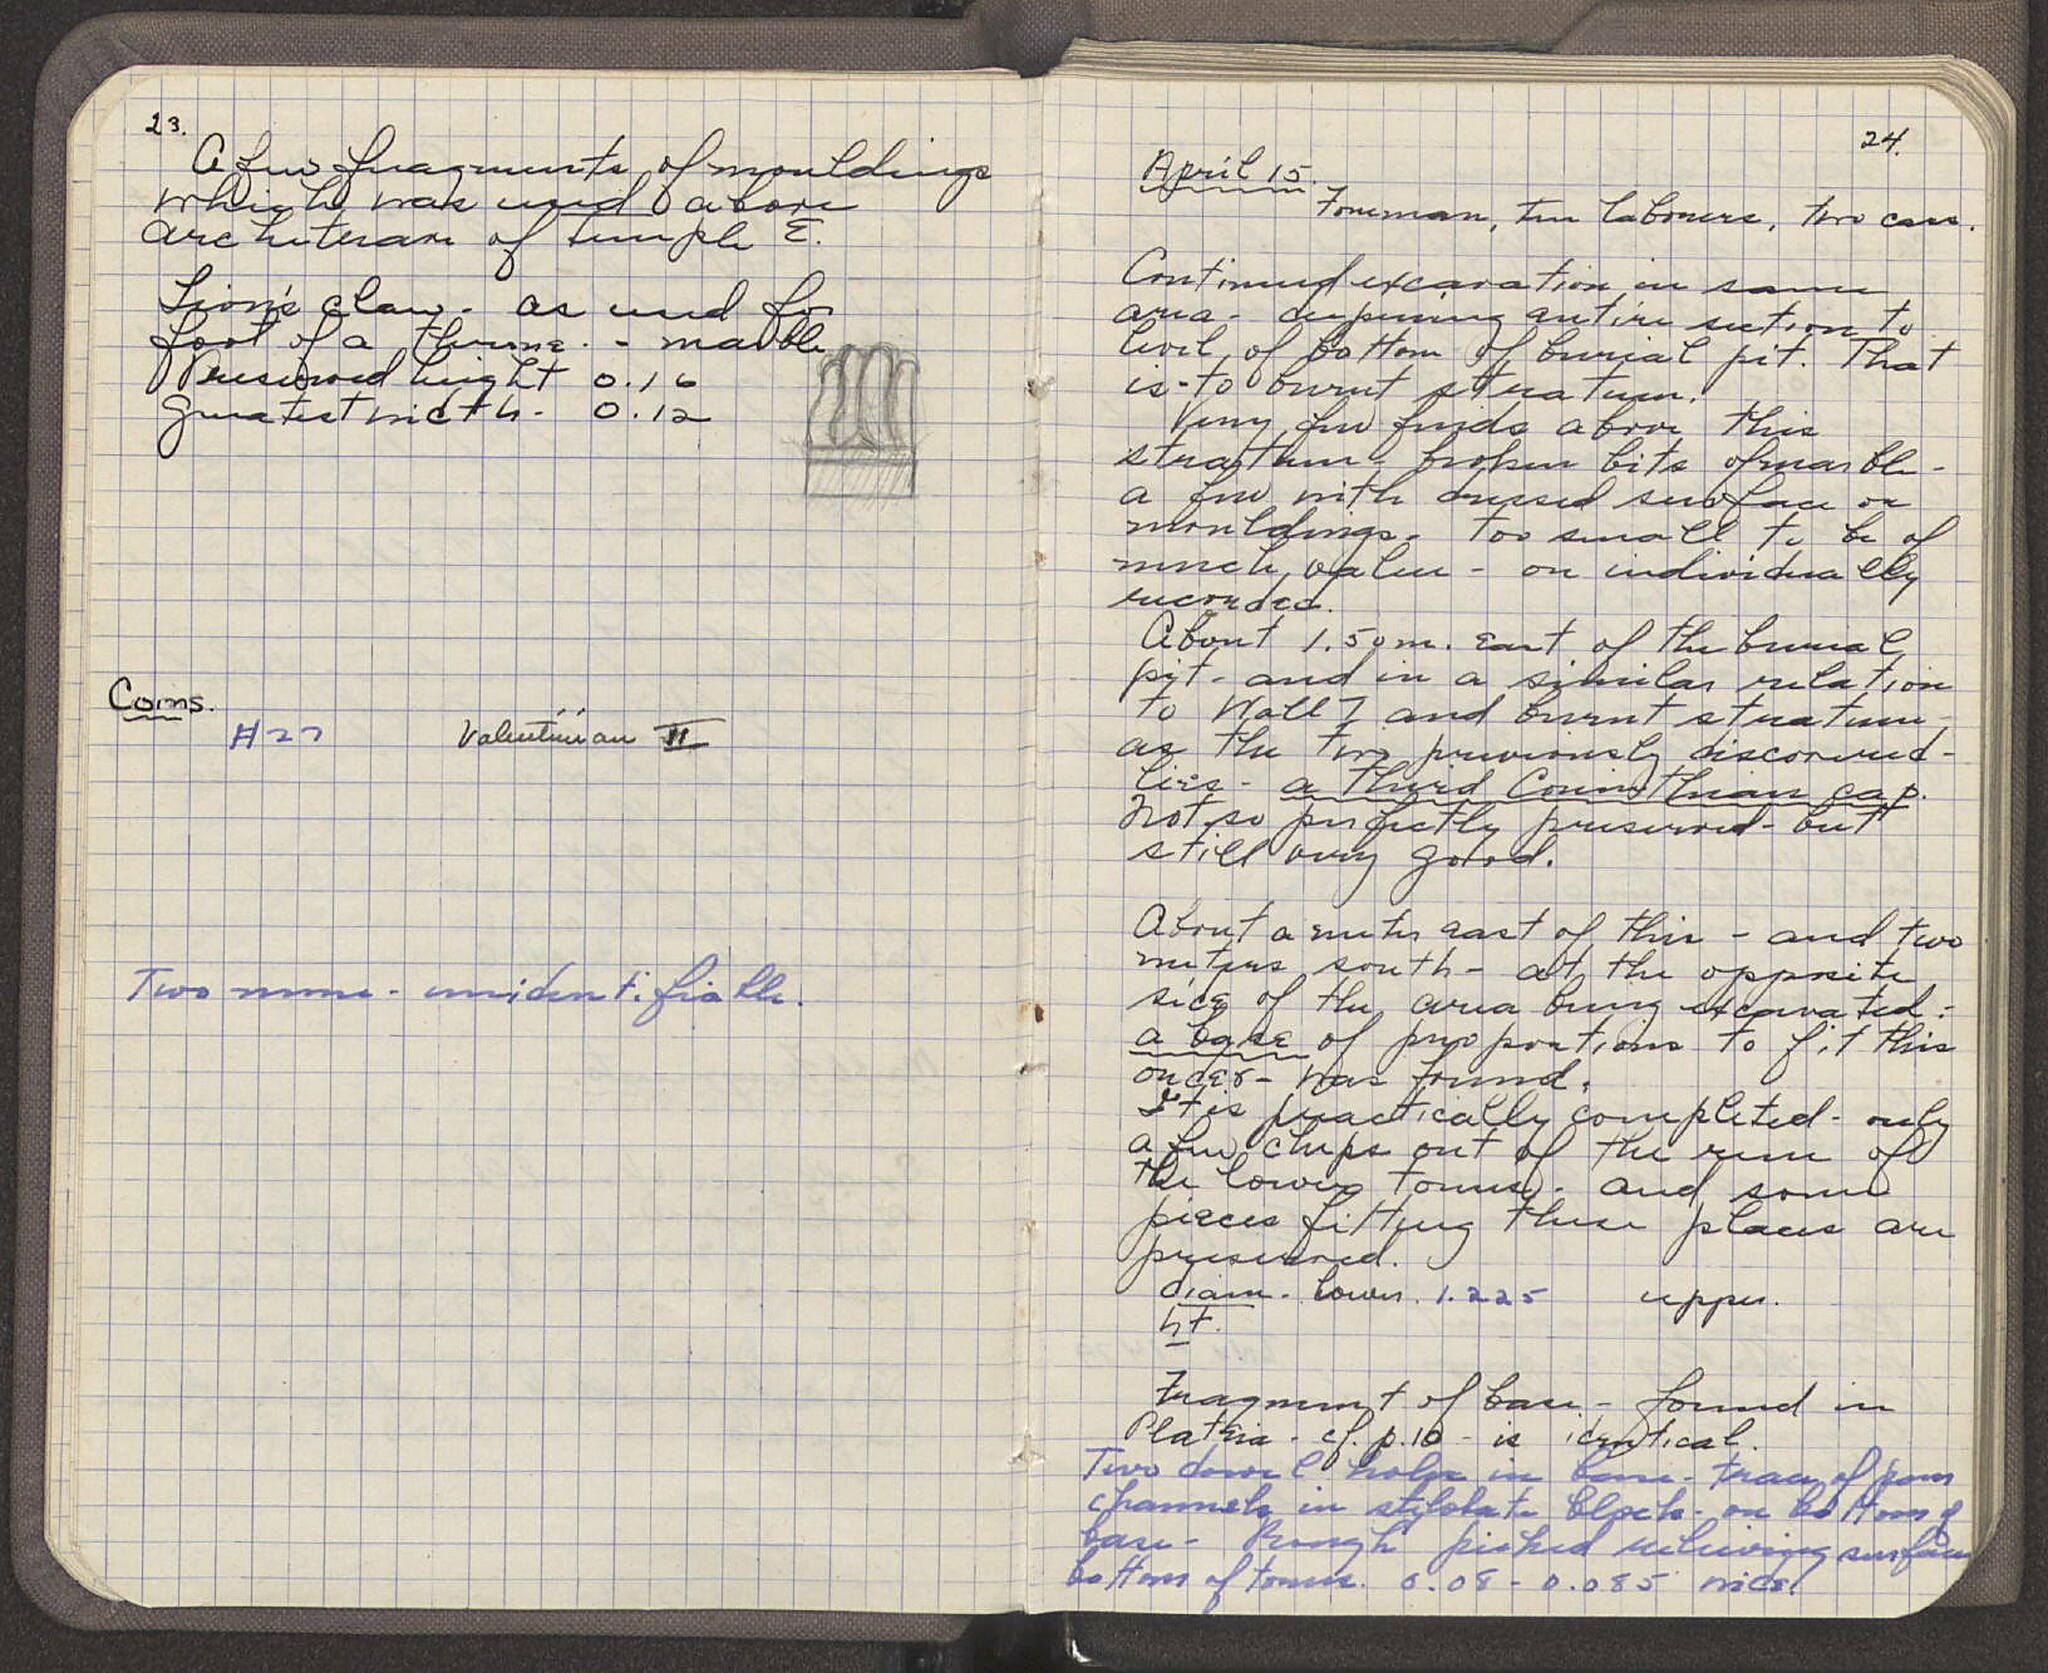 23.
A few fragments of mouldings
which was used above
architrave of temple E.
Lion's claw - as used for
foot of a throne. - marble
Preserved height 0.16
greatest width - 0.12
Coins.
#27 Valentinian II
Two more - unidentifiable.
24.
April 15.
Foreman, ten laborers, two cars.
Continued excavation in same
area - deepening entire section to
level of bottom of burial pit. That
is - to burnt stratum.
Very few finds above this
stratum - broken bits of marble -
a few with dressed surface or
mouldings - too small to be of
much value - or individually
recorded.
About 1.50 m. east of the burial
pit - and in a similar relation
to Wall 7 and burnt stratum -
as the two previously discovered -
lies - a third Corinthian cap.
Not so perfectly preserved - but
still very good.
About a meter east of this - and two
meters south - at the opposite
side of the area being excavated:
a base of proportions to fit this
order - was found.
It is practically completed - only
a few chips out of the rim of
the lower torus - and some
pieces fitting these places are
preserved.
diam - lower. 1.225 upper.
ht.
Fragment of base - found in
Plateia - cf. p. 10 - is identical.
Two dowel holes in base - trace of pour
channels in stylobate block - on bottom of
base - Rough picked relieving surface
bottom of torus. 0.08 - 0.085 wide.